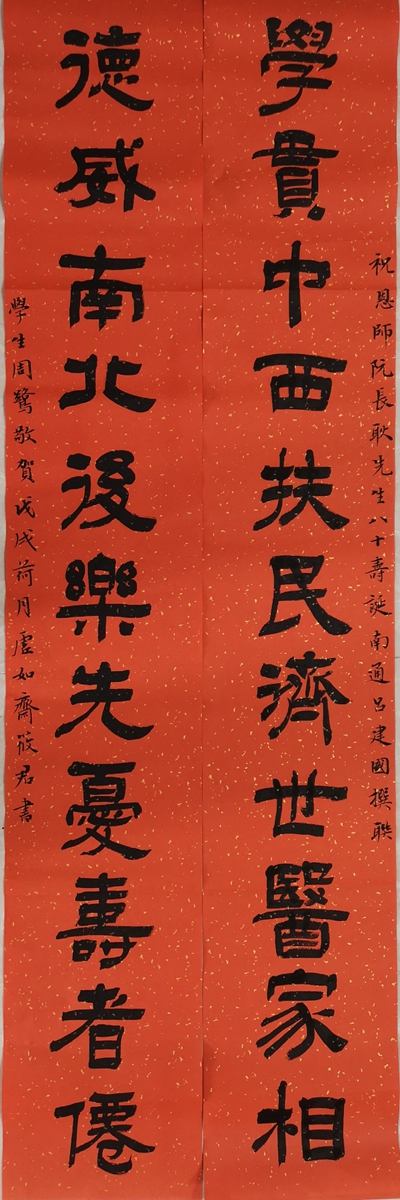 祝恩師阮長耿先生八十壽誕南通呂建國撰聯
學貫中西扶民濟世醫家相
德威南北後樂先憂壽者僊
學生周鶩敬賀戊戌荷月虛如齋筱君書